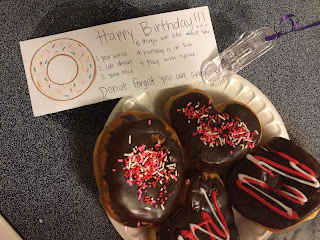 Happy Birthday!!!
5 things we like about you
1. your smile
2. cute dresses
3. your voice
4. birthday is in Feb
5. Play with Syrise
Donut forget you can s